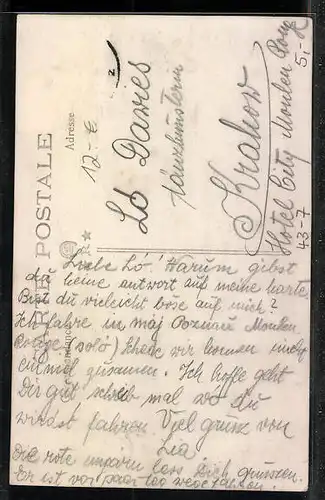 CARTE POSTALE
Adresse
12.- €
Lo Davies
Tänzkünstlerin
Krakow
Hotel City Moulen Rouge
43-7
5,-
Liebe Lo! Warum gibst
du keine antwort auf meine karte
Bist du vieleicht böse auf mich?
Ich fahre in maj Poznań Moulen
Rouge (solo) schade wir komen nicht
einmal zusamen. Ich hoffe geht
Dir gut schreib mal wo du
wirdst fahren Viel grüse von
Lia
Die rote ungarin lass Dich grussen.
Er ist vor paar tag wegefahren.